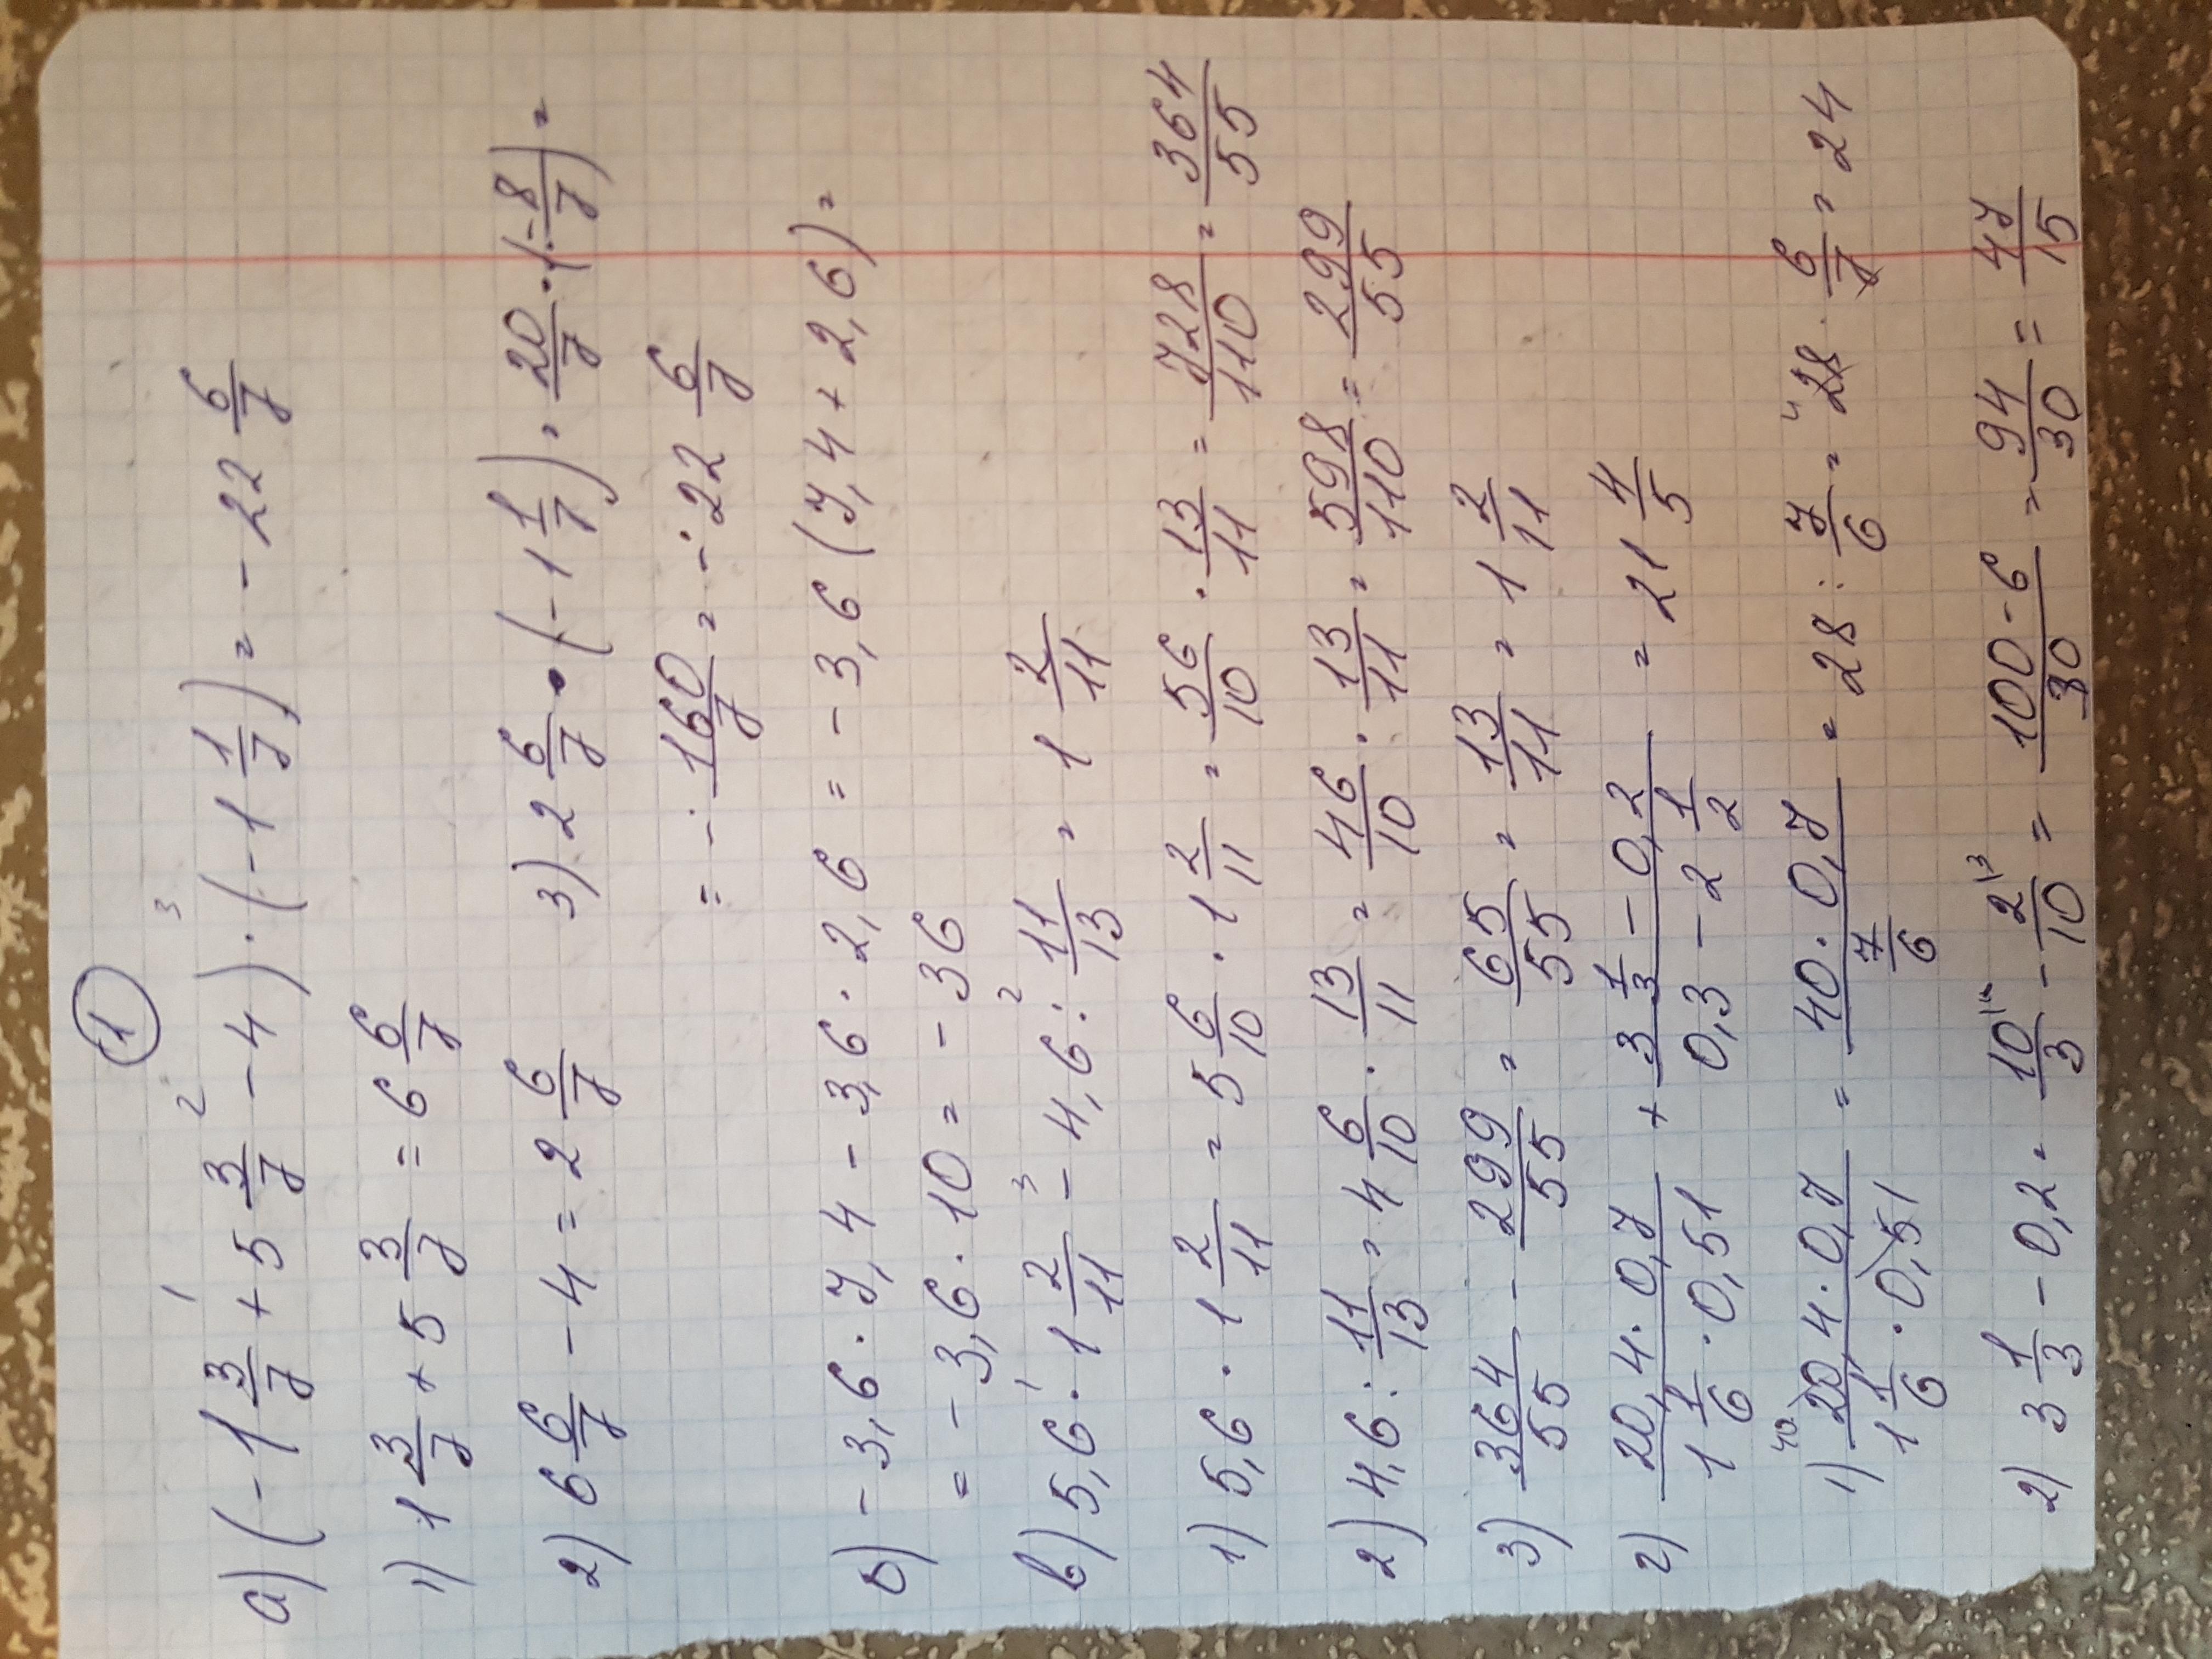 1
а) (-1 3/7 + 5 3/7 - 4) · (-1 1/7) = -22 6/7
1) 1 3/7 + 5 3/7 = 6 6/7
2) 6 6/7 - 4 = 2 6/7 3) 2 6/7 · (-1 1/7) = 20/7 · (-8/7) =
= - 160/7 = -22 6/7
б) -3,6 · 7,4 - 3,6 · 2,6 = -3,6 (7,4 + 2,6) =
= -3,6 · 10 = -36
в) 5,6 · 1 2/11 - 4,6 : 11/13 = 1 2/11
1) 5,6 · 1 2/11 = 5 6/10 · 1 2/11 = 56/10 · 13/11 = 728/110 = 364/55
2) 4,6 : 11/13 = 4 6/10 · 13/11 = 46/10 · 13/11 = 598/110 = 299/55
3) 364/55 - 299/55 = 65/55 = 13/11 = 1 2/11
г) (20,4 · 0,7)/(1 1/6 · 0,51) + (3 1/3 - 0,2)/(0,3 - 2 1/2) = 21 4/5
1) (20,4 · 0,7)/(1 1/6 · 0,51) = (40 · 0,7)/(7/6) = 28 : 7/6 = 28 · 6/7 = 24
2) 3 1/3 - 0,2 = 10/3 - 2/10 = (100 - 6)/30 = 94/30 = 47/15